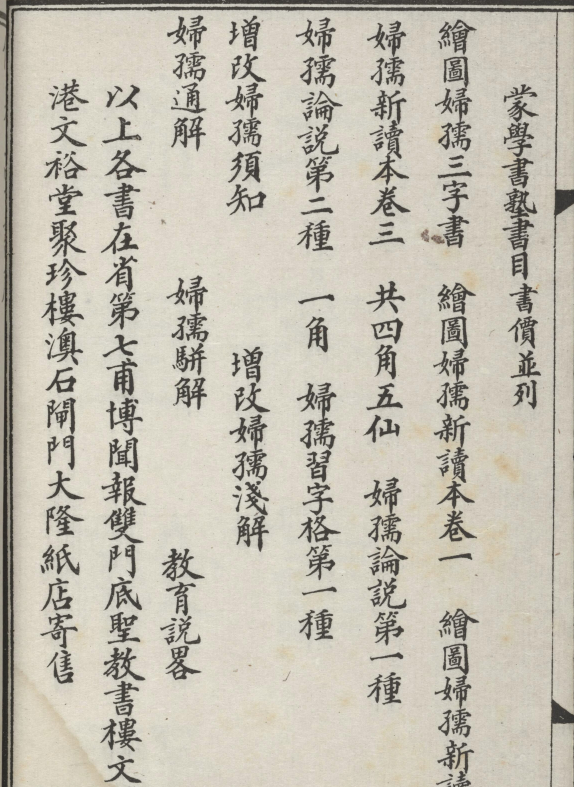 蒙學書塾書目書價並列
繪圖婦孺三字書　繪圖婦孺新讀本卷一　繪圖婦孺新讀
婦孺新讀本卷三　共四角五仙　婦孺論説第一種
婦孺論説第二種　一角　婦孺習字格第一種
增改婦孺須知　增改婦孺淺解
婦孺通解　婦孺駢解　教育説畧
以上各書在省第七甫博聞報雙門底聖教書樓文
港文裕堂聚珍樓澳石閘門大隆紙店寄售